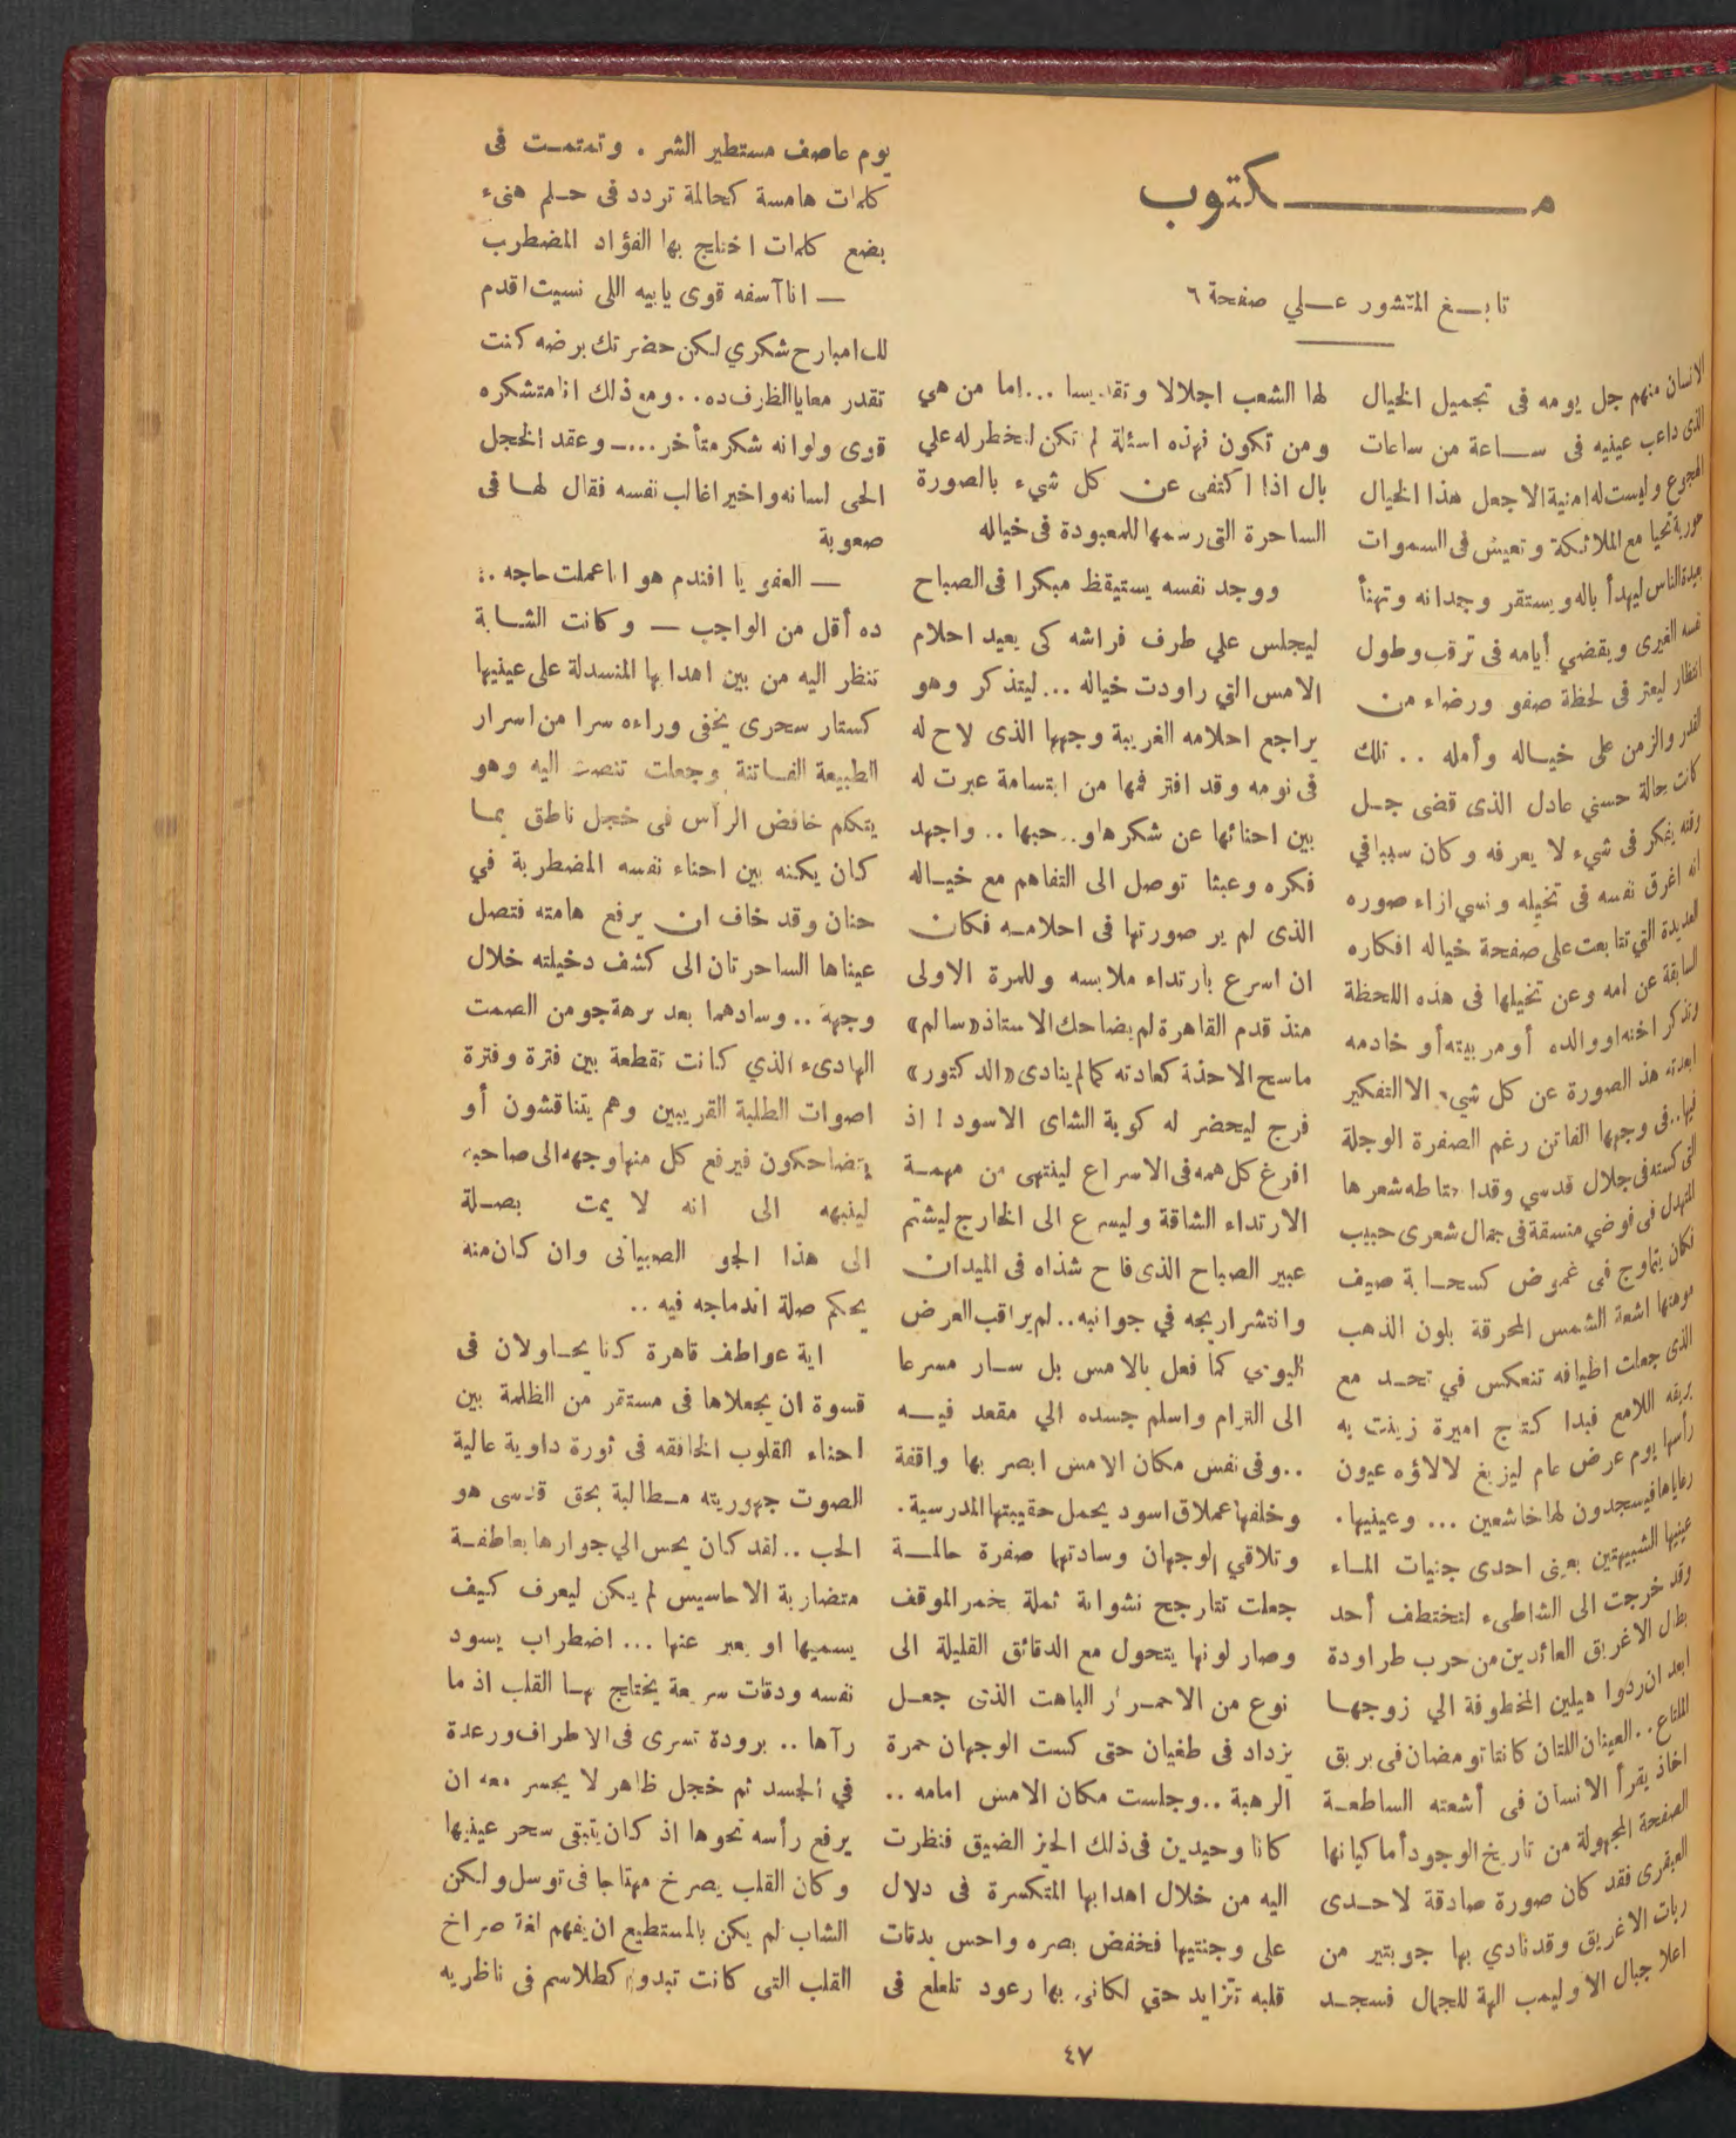 مكتوب
تابع المنشور على صفحة ٦
الانسان منهم جل يومه فى تجميل الخيال
الذى داعب عينيه فى ساعة من ساعات
الهجوع وليست له امنية الا جعل هذا الخيال
حورية تحيا مع الملائكة وتعيش فى السموات
بعيدة الناس ليهدأ باله ويستقر وجدانه وتهنأ
نفسه الغيرى ويقضي أيامه فى ترقب وطول
انتظار ليعثر فى لحظة صفو ورضاء من
القدر والزمن على خياله وأمله .. تلك
كانت حالة حسني عادل الذى قضى جل
وقته يفكر فى شيء لا يعرفه وكان سببا في
انه اغرق نفسه فى تخيله ونسي ازاء صوره
العديدة التي تتابعت على صفحة خياله افكاره
السابقة عن امه وعن تخيلها فى هذه اللحظة
وتذكر اخته او والده أو مربيته أو خادمه
ابعدته هذ الصورة عن كل شيء الا التفكير
فيها.. فى وجهها الفاتن رغم الصفرة الوجلة
التى كسته فى جلال قدسي وقد احتاطه شعرها
المتهدل فى فوضي منسقة فى جمال شعرى حبيب
فكان يتماوج فى غموض كسحابة صيف
موهنها اشعة الشمس المحرقة بلون الذهب
الذى جعلت اطيافه تنعكس في تحد مع
بريقه اللامع فبدا كتاج اميرة زينت به
رأسها يوم عرض عام ليزيغ لالاؤه عيون
رعاياها فيسجدون لها خاشعين ... وعينيها.
عينيها الشبيهتين بعينى احدى جنيات الماء
وقد خرجت الى الشاطىء لتختطف أحد
بطال الاغريق العائدين من حرب طراودة
ابعد ان ردوا هيلين المخطوفة الي زوجها
الملتاع.. العينان اللتان كانتا تومضان فى بريق
اخاذ يقرأ الانسان فى أشعته الساطعة
الصفحة المجهولة من تاريخ الوجود أما كيانها
العبقرى فقد كان صورة صادقة لاحدى
ربات الاغريق وقد نادي بها جوبتير من
اعلا جبال الاوليمب الهة للجمال فسجد
لها الشعب اجلالا وتقديسا ... اما من هي
ومن تكون فهذه اسئلة لم تكن لتخطر له علي
بال اذا اكتفى عن كل شيء بالصورة
الساحرة التى رسمها للمعبودة فى خياله
ووجد نفسه يستيقظ مبكرا فى الصباح
ليجلس علي طرف فراشه كى يعيد احلام
الامس التي راودت خياله ... ليتذكر وهو
يراجع احلامه الغريبة وجهها الذى لاح له
فى نومه وقد افتر فمها من ابتسامة عبرت له
بين احنائها عن شكرها و.. حبها .. واجهد
فكره وعبثا توصل الى التفاهم مع خياله
الذى لم ير صورتها فى احلامه فكان
ان اسرع بارتداء ملابسه وللمرة الاولى
منذ قدم القاهرة لم يضاحك الاستاذ «سالم»
ماسح الاحذة كعادته كما لم ينادى «الدكتور»
فرج ليحضر له كوبة الشاى الاسود ! اذ
افرغ كل همه فى الاسراع لينتهى من مهمة
الارتداء الشاقة وليسرع الى الخارج ليشتم
عبير الصباح الذى فاح شذاه فى الميدان
وانتشر اريجه في جوانبه.. لم يراقب العرض
اليومي كما فعل بالامس بل سار مسرعا
الى الترام واسلم جسده الي مقعد فيه
.. وفى نفس مكان الامس ابصر بها واقفة
وخلفها عملاق اسود يحمل حقيبتها المدرسية.
وتلاقي الوجهان وسادتهما صفرة حالمة
جعلت تتارجح نشوانة ثملة بخمر الموقف
وصار لونها يتحول مع الدقائق القليلة الى
نوع من الاحمرار الباهت الذى جعل
يزداد فى طغيان حتى كست الوجهان حمرة
الرهبة .. وجلست مكان الامس امامه ..
كانا وحيدين فى ذلك الحيز الضيق فنظرت
اليه من خلال اهدابها المتكسرة فى دلال
على وجنتيها فخفض بصره واحس بدقات
قلبه تتزايد حتي لكانى بها رعود تلعلع فى
يوم عاصف مستطير الشر . وتمتمت فى
كلمات هامسة كحالمة تردد فى حلم هنىء
بضع كلمات اختلج بها الفؤاد المضطرب
— انا آسفه قوى يابيه اللى نسيت اقدم
لك امبارح شكري لكن حضرتك برضه كنت
تقدر معايا الظرف ده.. ومع ذلك انا متشكره
قوى ولو انه شكر متأخر ...— وعقد الخجل
الحى لسانه واخيرا غالب نفسه فقال لها فى
صعوبة
— العفو يا افندم هو انا عملت حاجه ..
ده أقل من الواجب — وكانت الشابة
تنظر اليه من بين اهدابها المنسدلة على عينيها
كستار سحرى يخفى وراءه سرا من اسرار
الطبيعة الفاتنة وجعلت تنصت اليه وهو
يتكلم خافض الرأس فى خجل ناطق بما
كان يكنه بين احناء نفسه المضطربة في
حنان وقد خاف ان يرفع هامته فتصل
عيناها الساحرتان الى كشف دخيلته خلال
وجهه .. وسادهما بعد برهة جو من الصمت
الهادىء الذي كانت تقطعة بين فترة وفترة
اصوات الطلبة القريبين وهم يتناقشون أو
يتضاحكون فيرفع كل منها وجهه الى صاحبه
لينبهه الى انه لا يمت بصلة
الى هذا الجو الصبيانى وان كان منه
يحكم صلة اندماجه فيه ..
اية عواطف قاهرة كنا يحاولان فى
قسوة ان يجعلاها فى مستقر من الظلمة بين
احناء القلوب الخافقه فى ثورة داوية عالية
الصوت جهوريته مطالبة بحق قدسى هو
الحب .. لقد كان يحس الي جوارها بعاطفة
متضاربة الاحاسيس لم يكن ليعرف كيف
يسميها او يعبر عنها ... اضطراب يسود
نفسه ودقات سريعة يختلج بها القلب اذ ما
رآها .. برودة تسرى فى الاطراف ورعدة
في الجسد ثم خجل ظاهر لا يجسر معه ان
يرفع رأسه نحوها اذ كان يتبقى سحر عينيها
وكان القلب يصرخ مهتاجا فى توسل ولكن
الشاب لم يكن بالمستطيع ان يفهم لغة صراخ
القلب التى كانت تبدو كطلاسم فى ناظريه
٤٧